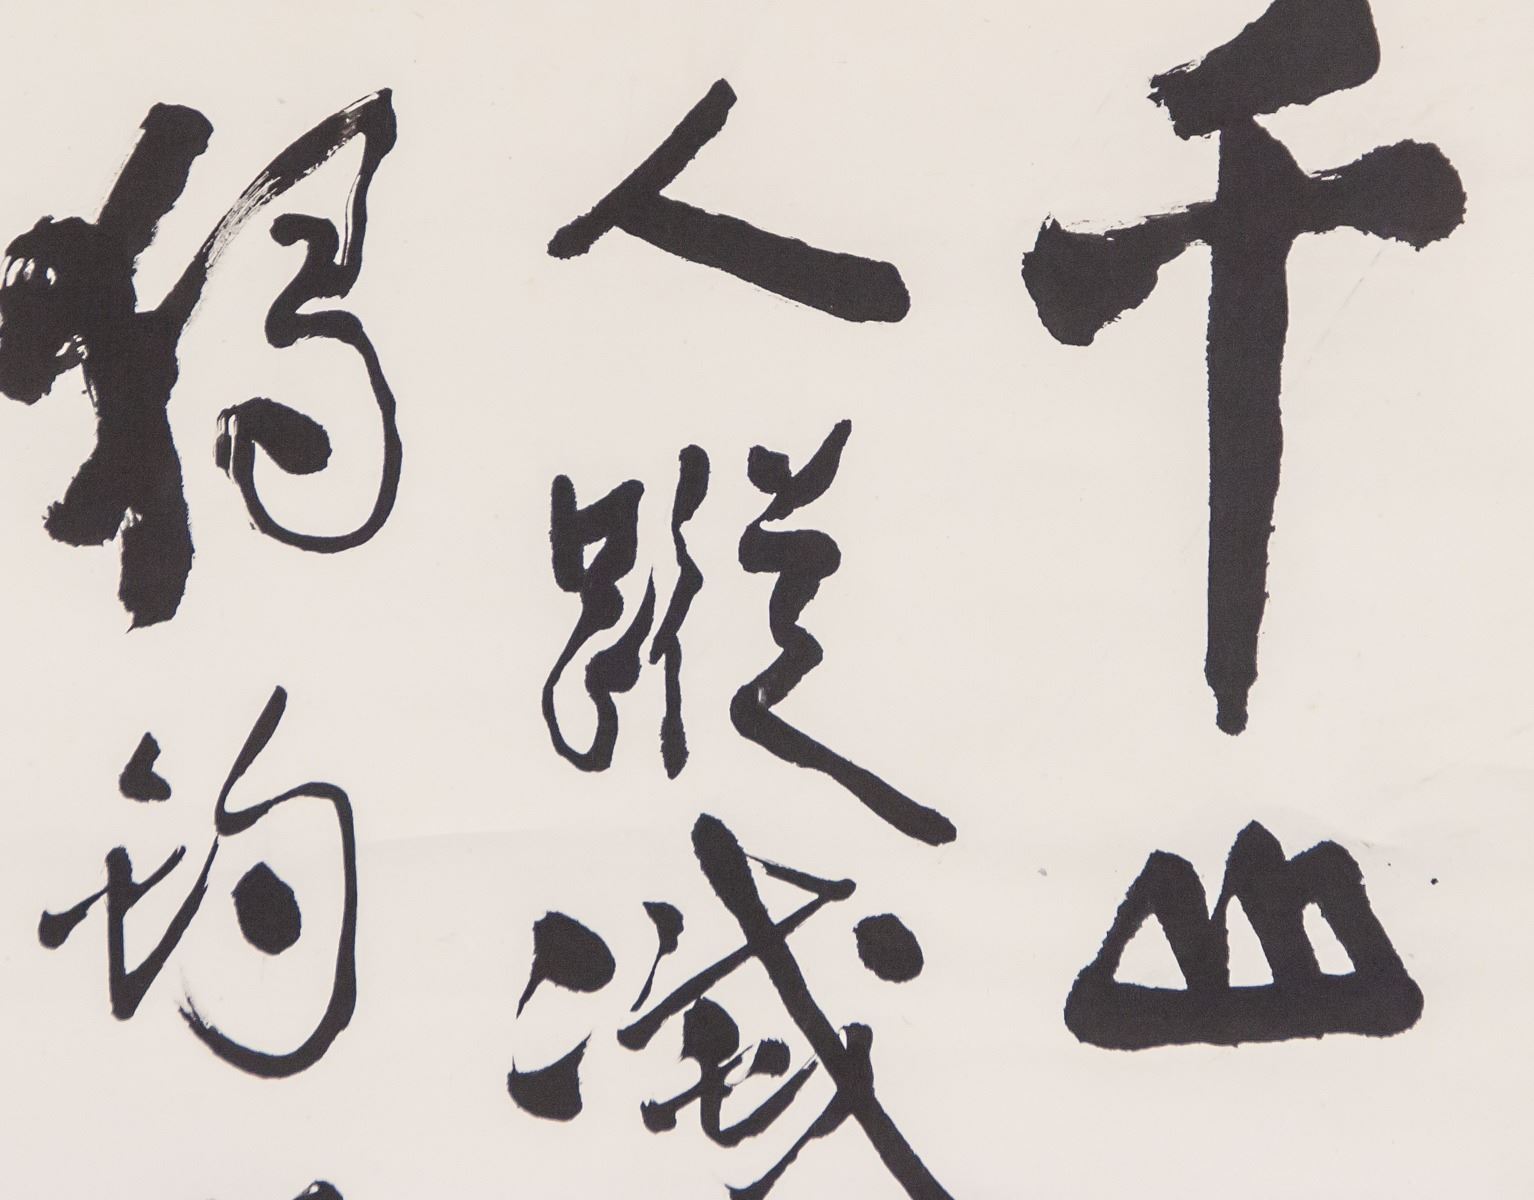 千山
人蹤滅
獨釣